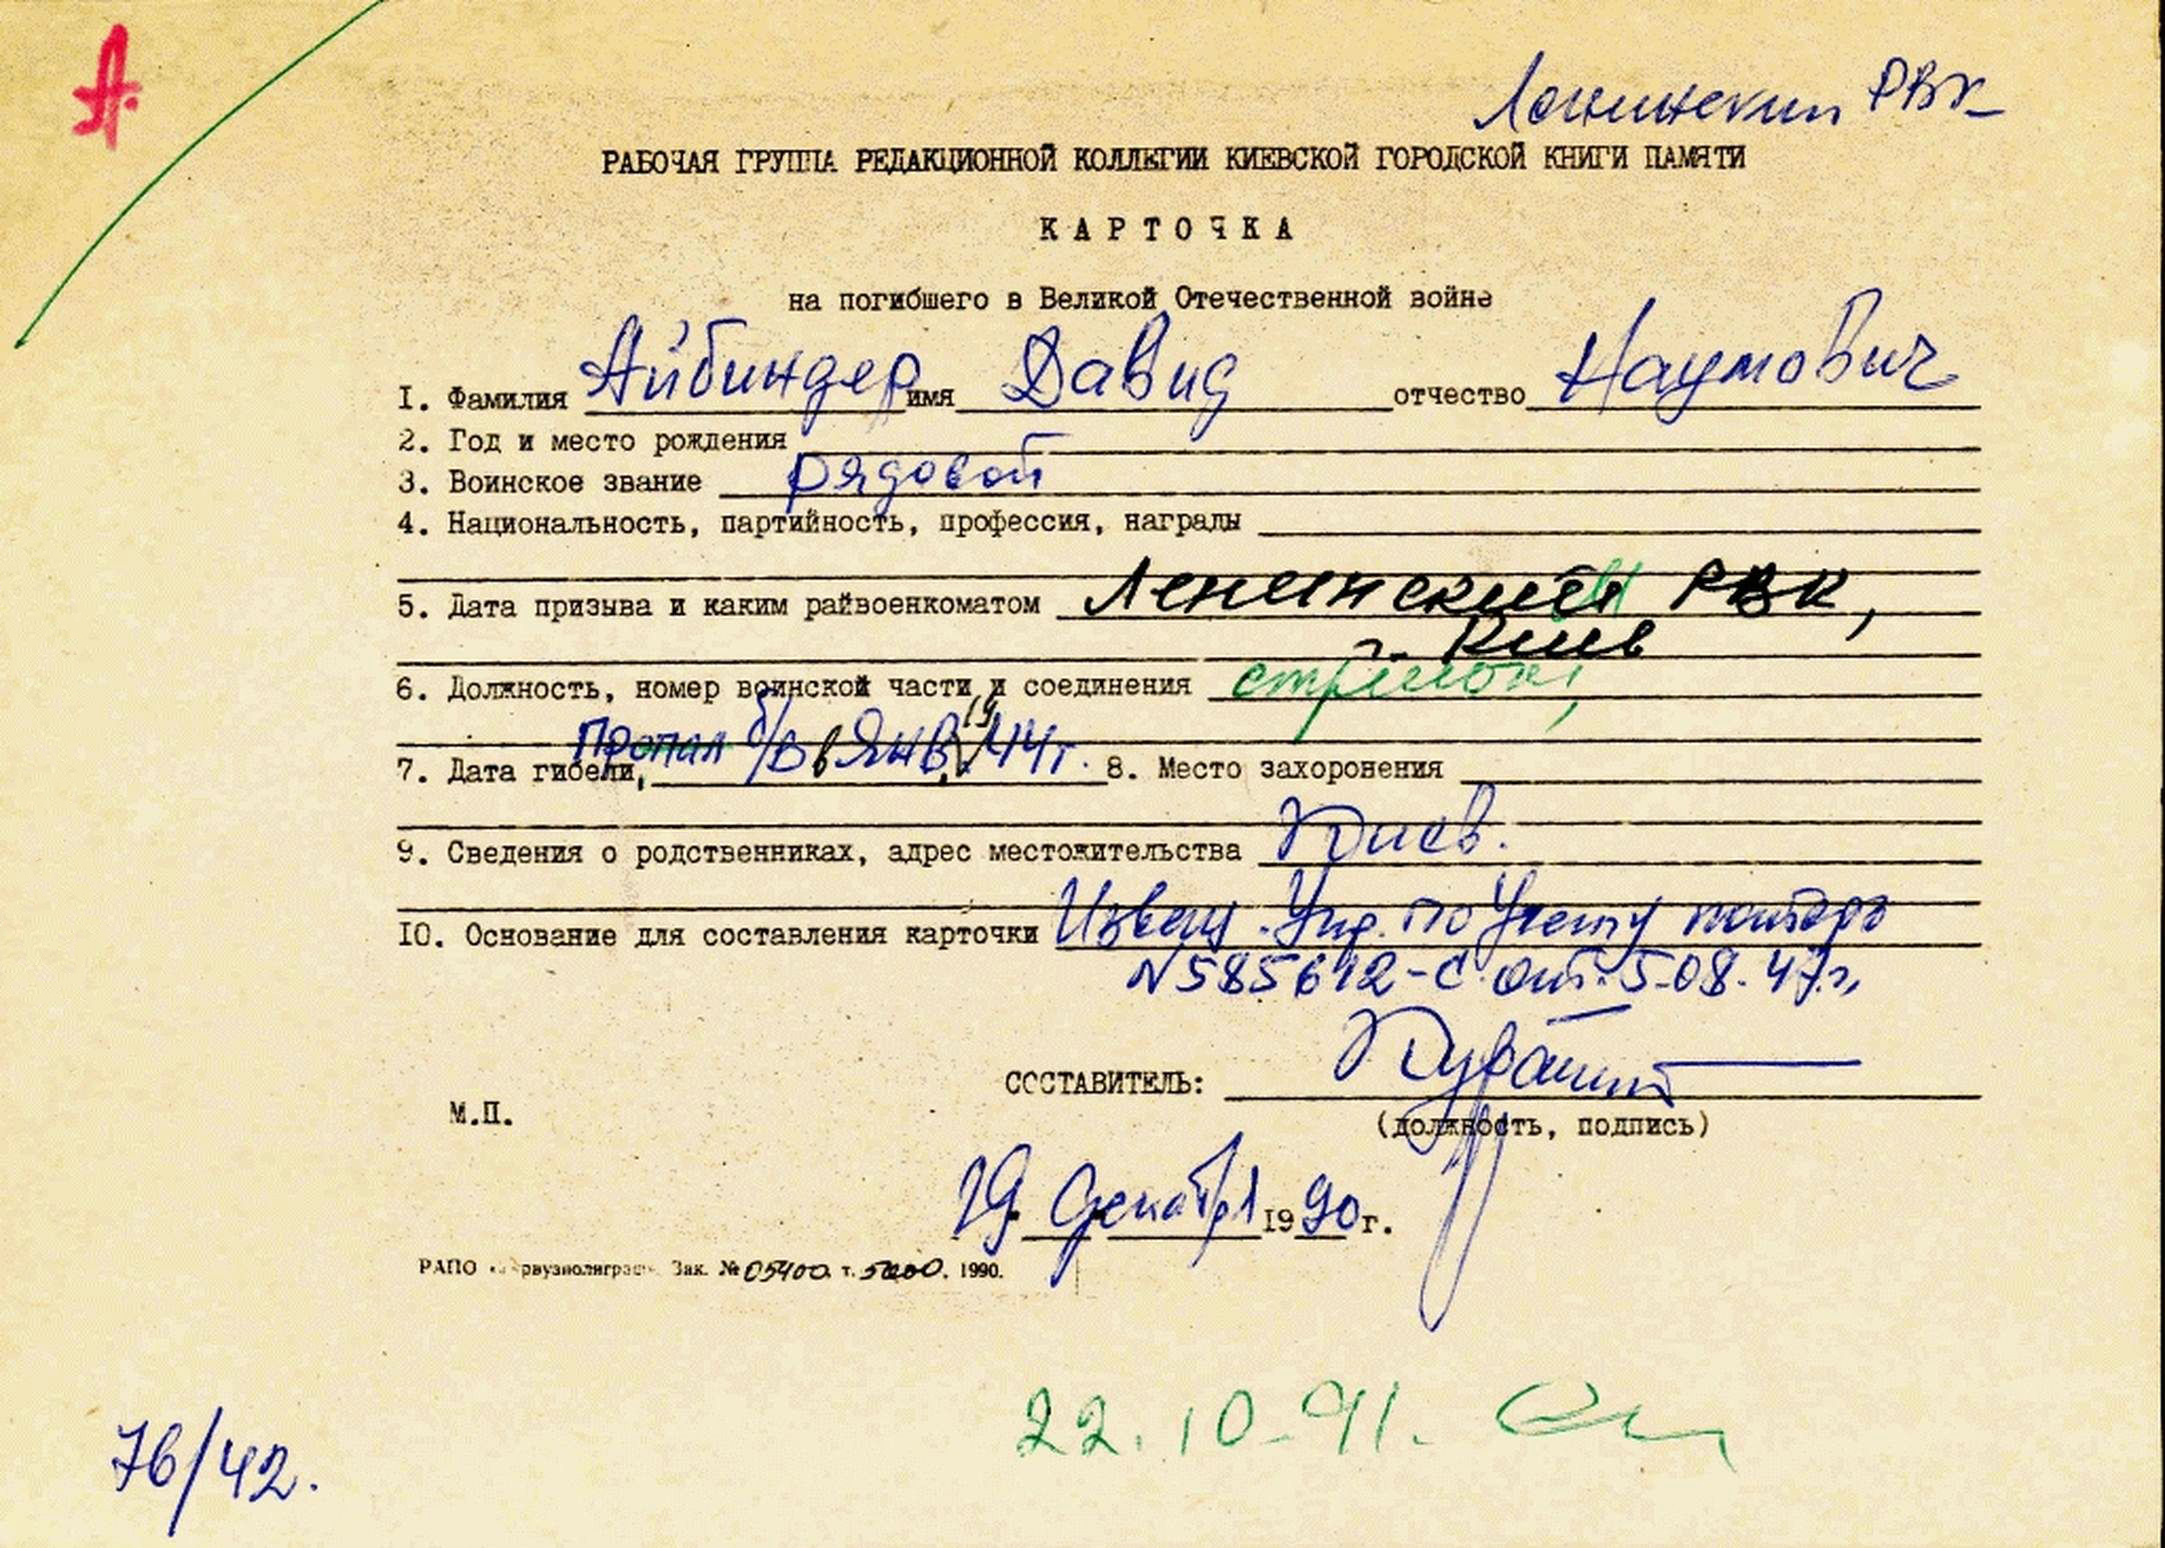 А.
Ленинский РВК
РАБОЧАЯ ГРУППА РЕДАКЦИОННОЙ КОЛЛЕГИИ КИЕВСКОЙ ГОРОДСКОЙ КНИГИ ПАМЯТИ
КАРТОЧКА
на погибшего в Великой Отечественной войне
I. Фамилия Айбиндер имя Давид отчество Наумович
2. Год и место рождения
3. Воинское звание рядовой
4. Национальность, партийность, профессия, награды
5. Дата призыва и каким райвоенкоматом Ленинский РВК,
г. Киев
6. Должность, номер воинской части и соединения стрелок,
7. Дата гибели, Пропал б/в в янв. 1944г. 8. Место захоронения
9. Сведения о родственниках, адрес местожительства Киев.
IO. Основание для составления карточки Извещ. Упр. по Учету потерь
N 585612-С от 5-08.47г,
СОСТАВИТЕЛЬ:
М.П.
(должность, подпись)
19. декабря 1990г.
РАПО Зак. № 05400 т. 5000. 1990.
22.10-91.
76/42.